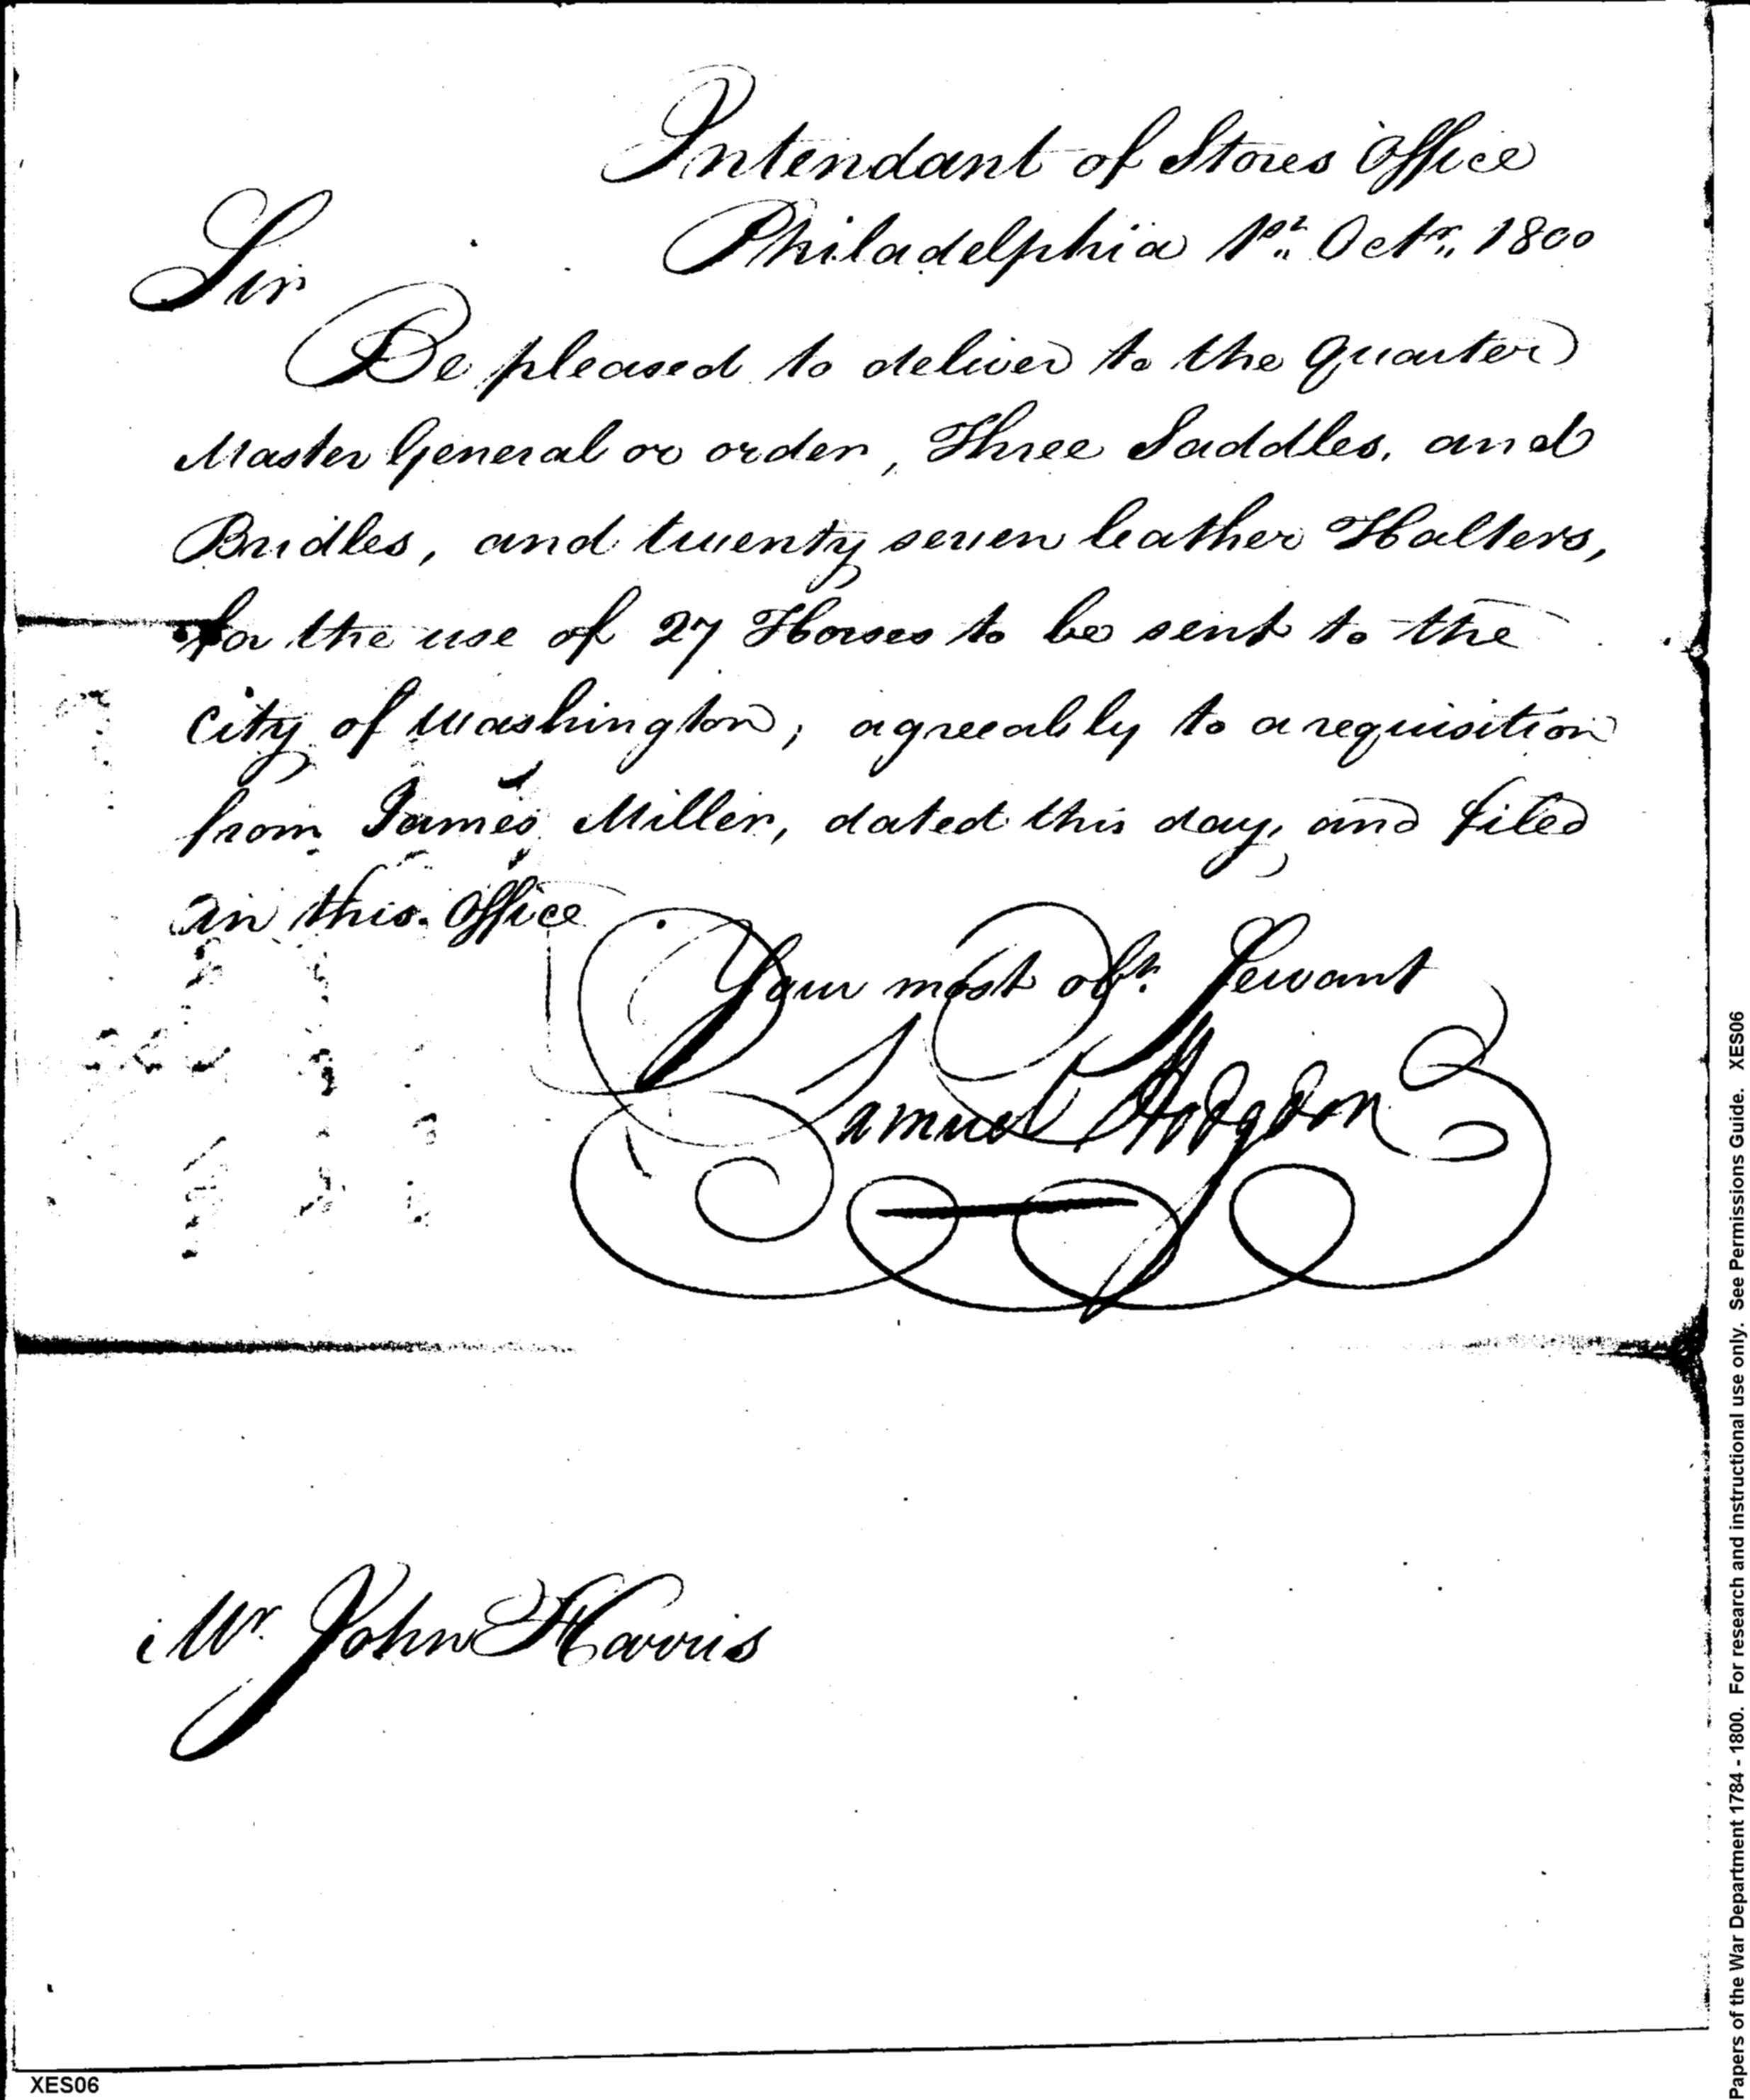 Intendant of Stores Office
Philadelphia 1st. Octr. 1800
Sir
Be pleased to deliver to the Quarter
Master General or order, Three Saddles, and
Bridles, and twenty seven leather Halters,
for the use of 27 Horses to be sent to the
City of Washington, agreeably to a requisition
from James Miller, dated this day, and filed
in this Office
Your most obt. Servant
Samuel Hodgdon
Mr. John Harris
XES06
Papers of the War Department 1784 - 1800. For research and instructional use only. See Permissions Guide. XES06